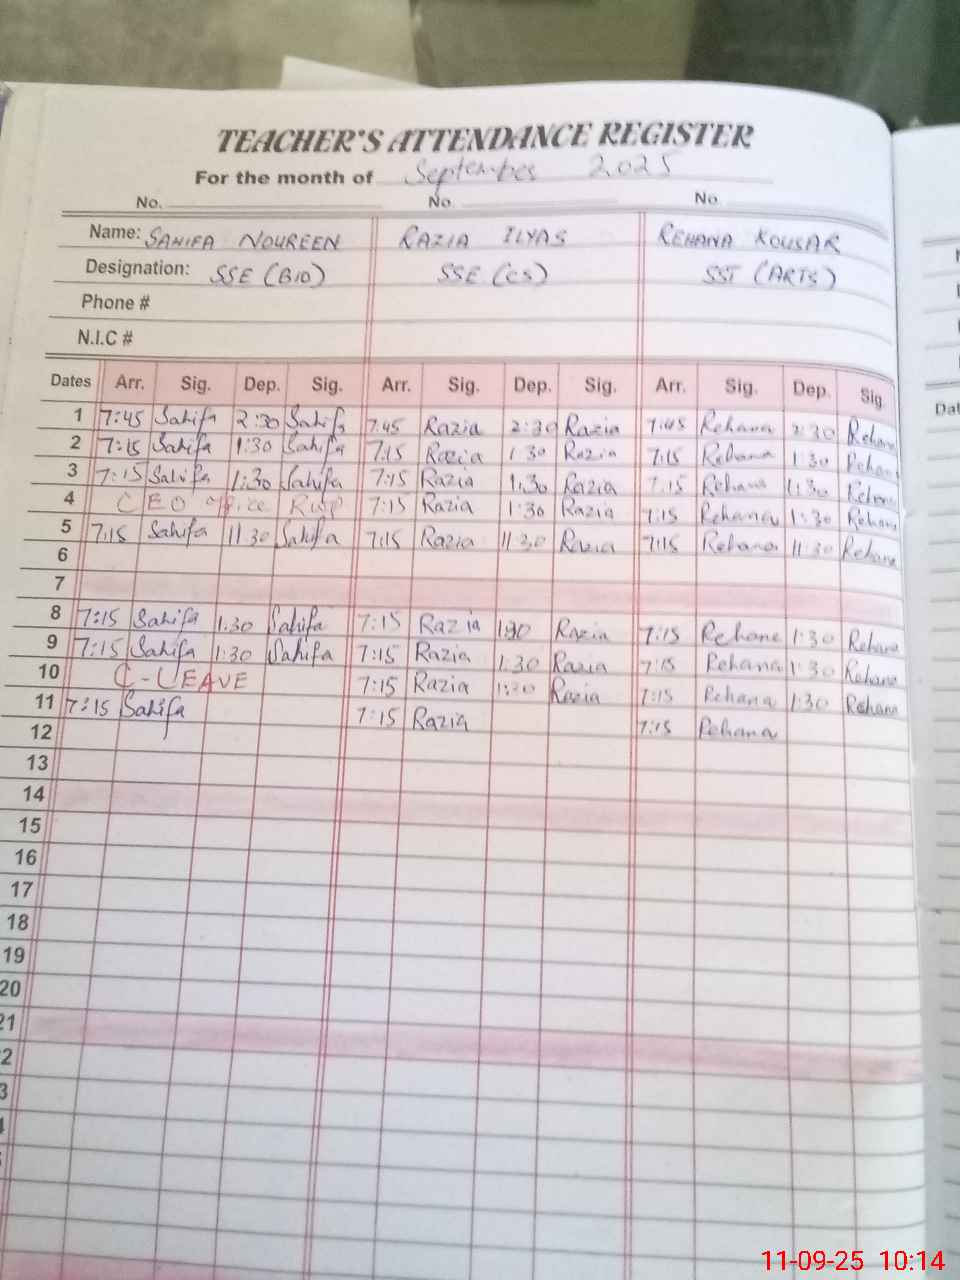 TEACHER'S ATTENDANCE REGISTER
For the month of September 2025
No. No. No.
Name: SAHIFA NOUREEN RAZIA ILYAS REHANA KOUSAR
Designation: SSE (BIO) SSE (CS) SST (ARTS)
Phone #
N.I.C #
Dates Arr. Sig. Dep. Sig. Arr. Sig. Dep. Sig. Arr. Sig. Dep. Sig.
1 7:45 Sahifa 2:30 Sahifa 7:45 Razia 2:30 Razia 7:45 Rehana 2:30 Rehana
2 7:15 Sahifa 1:30 Sahifa 7:15 Razia 1:30 Razia 7:15 Rehana 1:30 Rehana
3 7:15 Sahifa 1:30 Sahifa 7:15 Razia 1:30 Razia 7:15 Rehana 1:30 Rehana
4 CEO office 7:15 Razia 1:30 Razia 7:15 Rehana 1:30 Rehana
5 7:15 Sahifa 11:30 Sahifa 7:15 Razia 11:30 Razia 7:15 Rehana 11:30 Rehana
6
7
8 7:15 Sahifa 1:30 Sahifa 7:15 Razia 1:30 Razia 7:15 Rehana 1:30 Rehana
9 7:15 Sahifa 1:30 Sahifa 7:15 Razia 1:30 Razia 7:15 Rehana 1:30 Rehana
10 C-LEAVE 7:15 Razia 1:30 Razia 7:15 Rehana 1:30 Rehana
11 7:15 Sahifa 7:15 Razia 7:15 Rehana
12
13
14
15
16
17
18
19
20
21
2
3
11-09-25 10:14